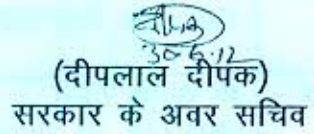 दीपक
30-5-12
(दीपलाल दीपक)
सरकार के अवर सचिव